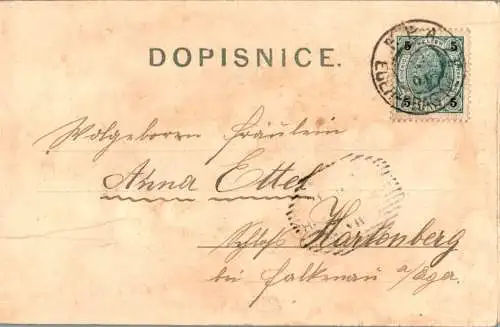 DOPISNICE.
5 5
5 5
Wolgeboren Fräulein
Anna Ettel
Schloß Hartenberg
bei Falkenau a/Eger.